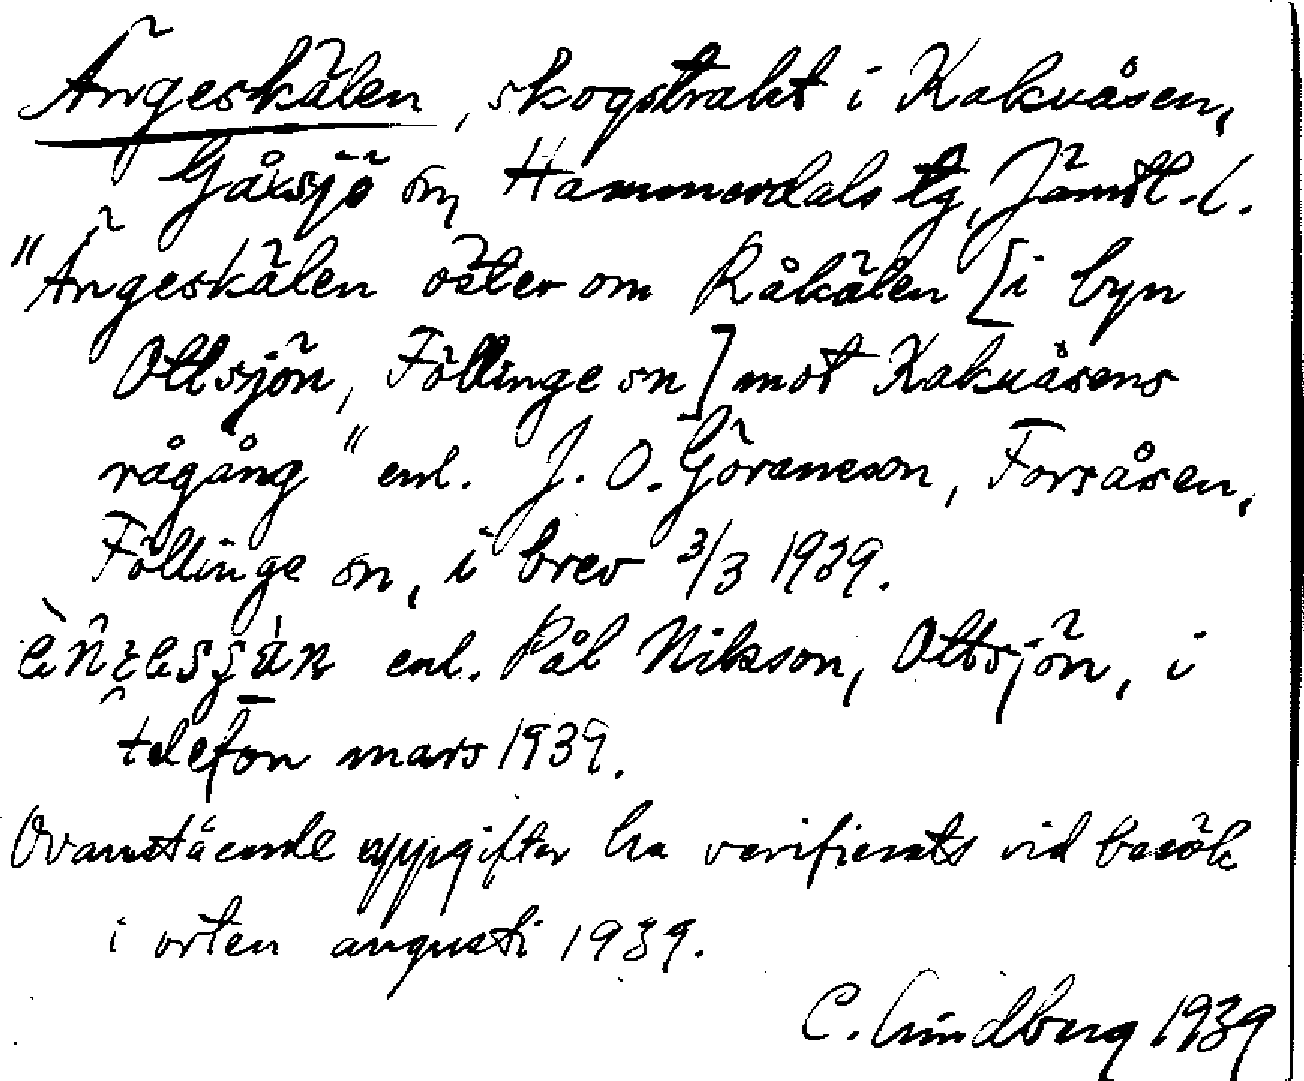 Ängeskälen, skogstrakt i Kakuåsen,
Gåxsjö sn, Hammerdals tg, Jämtl. l.
"Ängeskälen öster om Råkälen [i byn
Ottsjön, Föllinge sn] mot Kakuåsens
rågång" enl. J. O. Göransson, Forsåsen,
Föllinge sn, i brev 3/3 1939.
enl. Pål Nilsson, Ottsjön, i
telefon mars 1939.
Ovanstående uppgifter ha verifierats vid besök
i orten augusti 1939.
C. Lindberg 1939